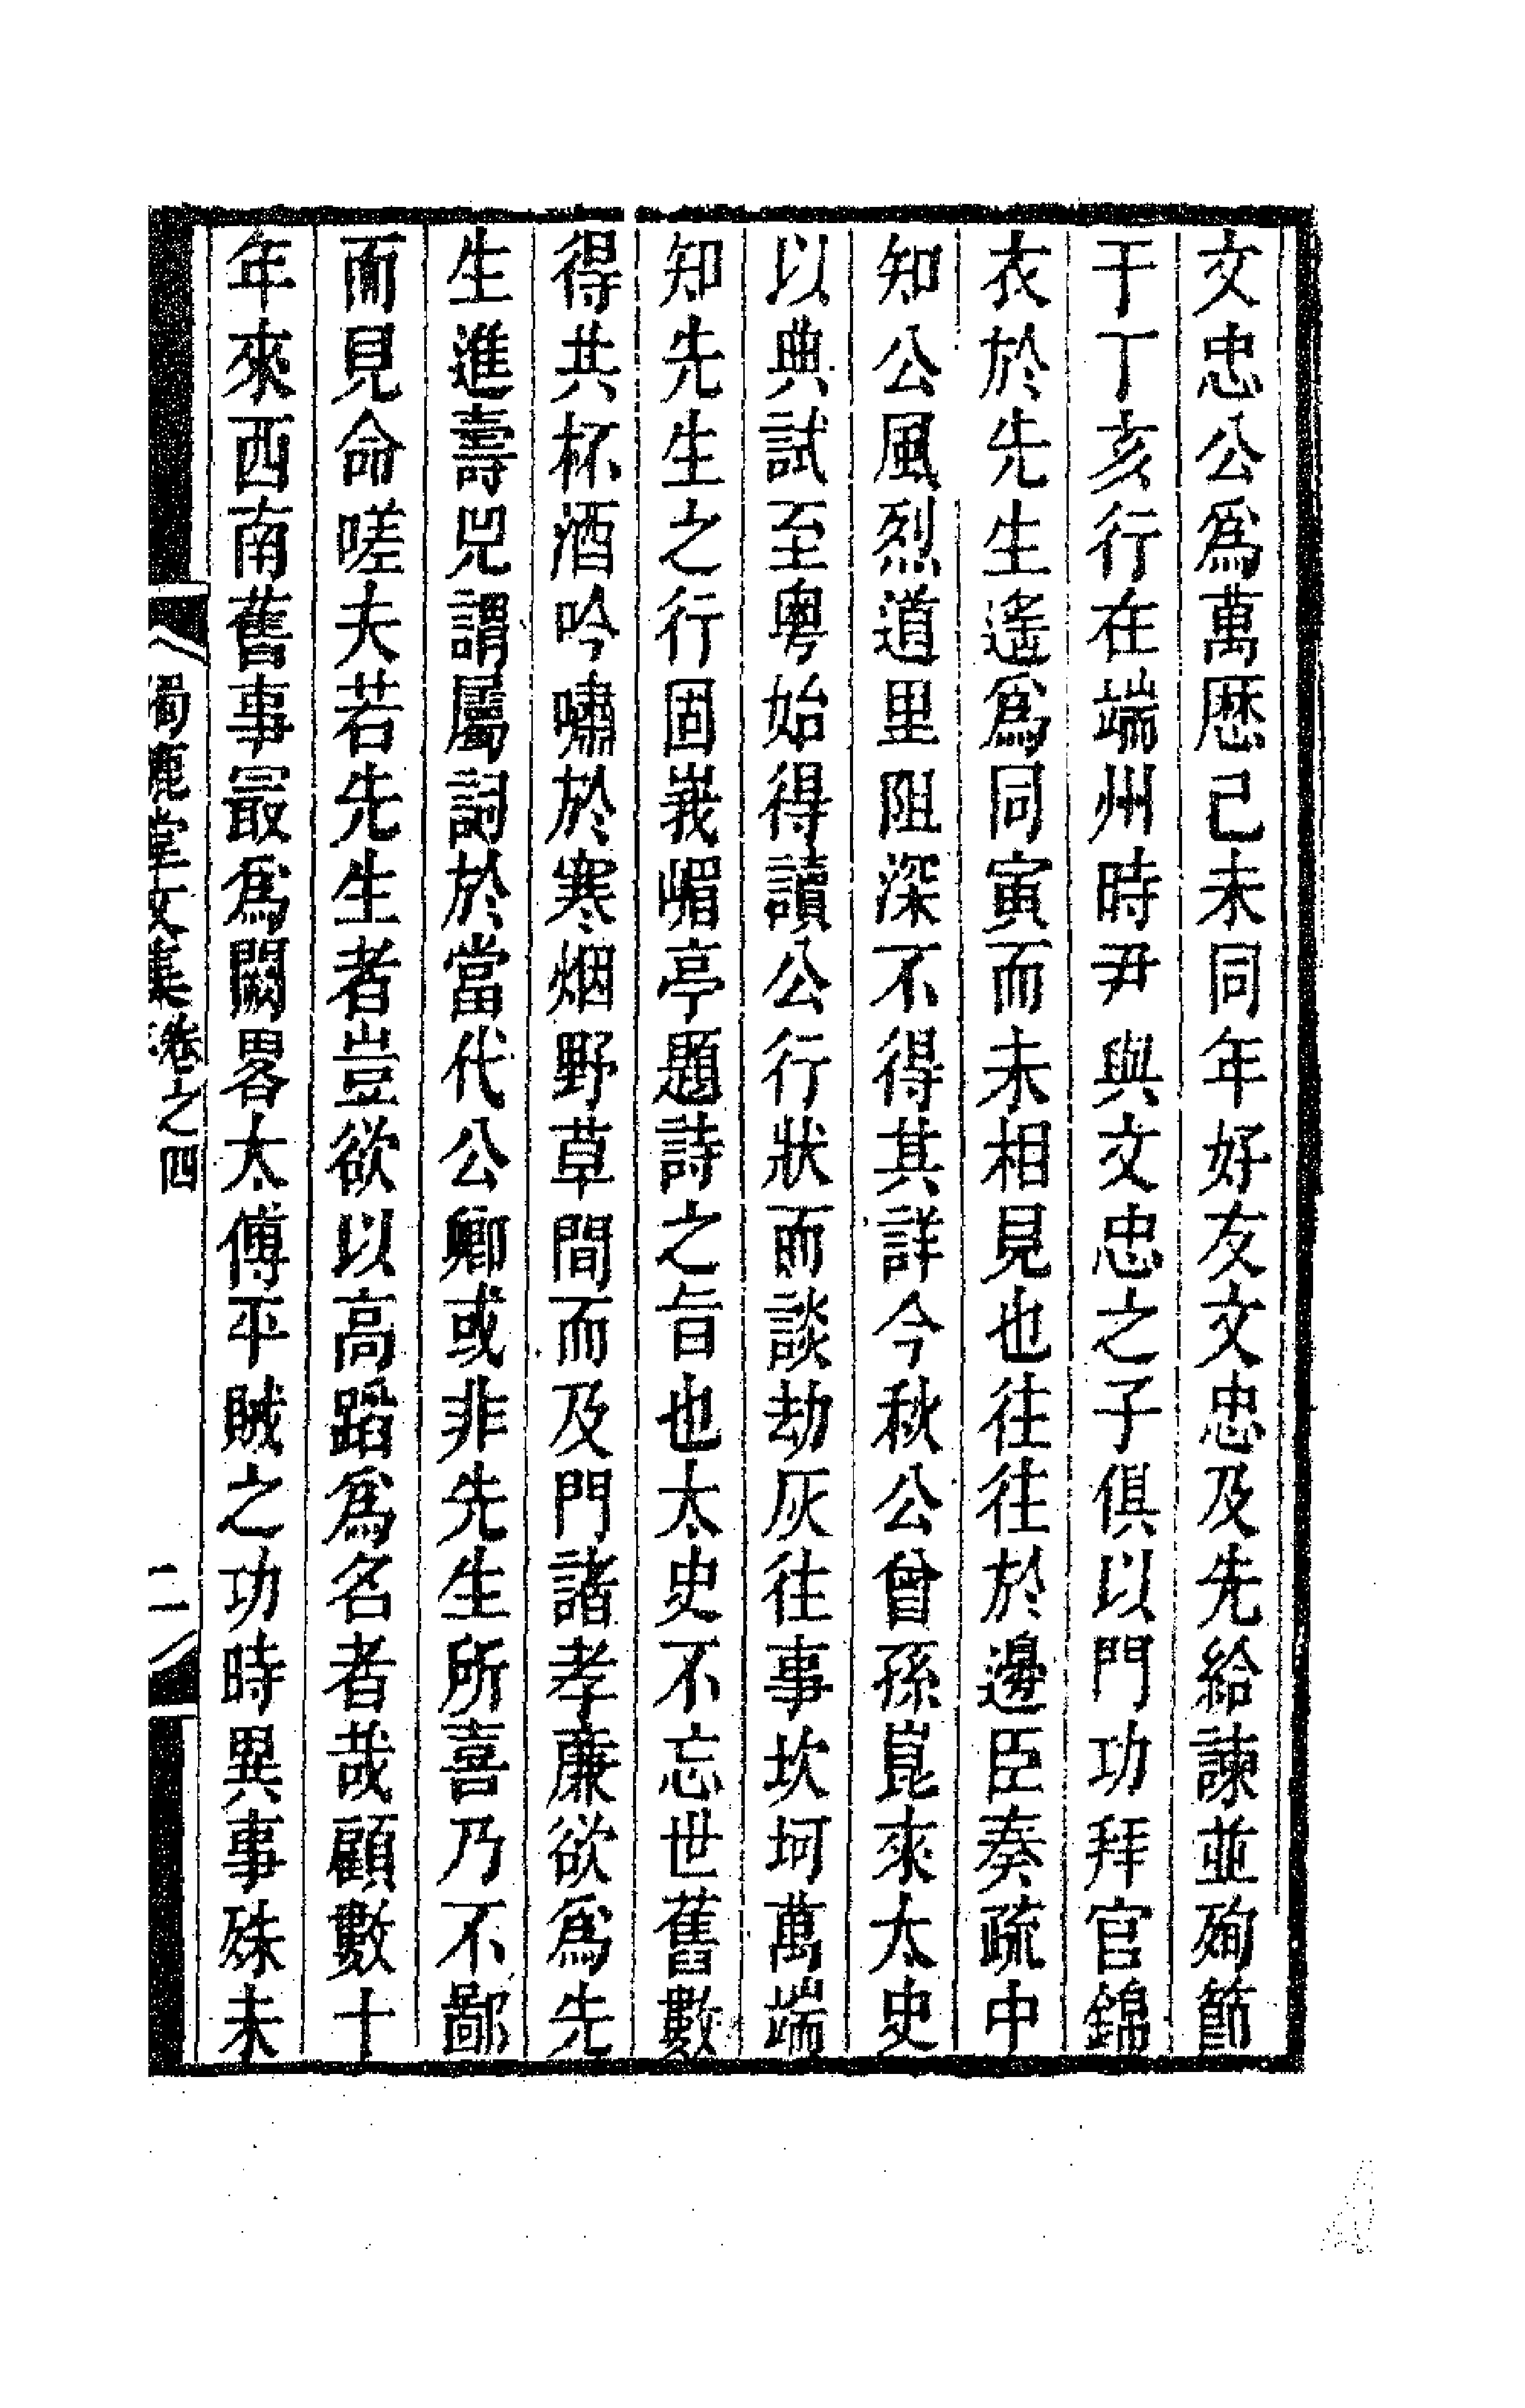 文忠公爲萬厯己未同年好友文忠及先給諫並殉節
于丁亥行在端州時尹與文忠之子俱以門功拜官錦
衣於先生遙爲同寅而未相見也往往於邊臣奏疏中
知公風烈道里阻深不得其詳今秋公曾孫崑來太史
以典試至粵始得讀公行狀而談劫灰往事坎坷萬端
知先生之行固峩嵋亭題詩之旨也太史不忘世舊數
得共杯酒吟嘯於寒烟野草間而及門諸孝廉欲爲先
生進壽兕謂屬詞於當代公卿或非先生所喜乃不鄙
而見命嗟夫若先生者豈欲以高蹈爲名者哉顧數十
年來西南舊事最爲闕畧太傅平賊之功時異事殊未
獨漉堂文集卷之四
二